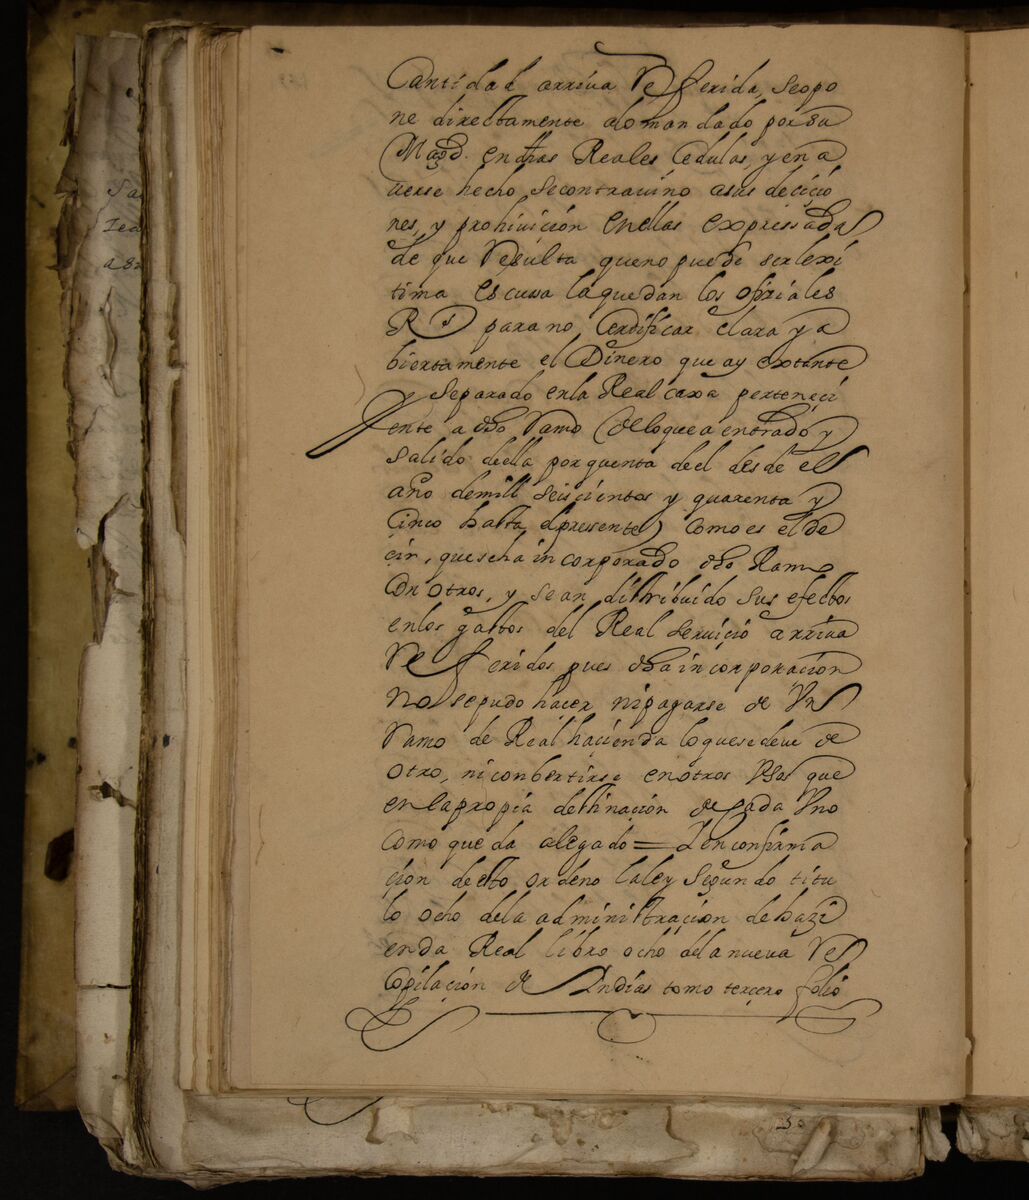 Cantidad arriva referida, seopo
ne direttamente alo mandado por su
Magd. en dhas Reales Cedulas, y en a
verse hecho secontravino asus deciçio
nes, y prohivición enellas expressadas
de que resulta queno puede ser lexi
tima escussa la quedan los ofiziales
Rs para no certificar clara y a
biertamente el Dinero que ay extante
y separado enla Real caxa perteneci
ente a dho ramo (delo que a entrado y
salido della por quenta deel desde el
año demill seiscientos y quarenta y
cinco hasta el pressente) como es el de
cir, que seha incorporado dho Ramo
con otros, y se an distribuido sus efectos
enlos gastos del Real servicio arriva
referidos pues dha incorporacion
no sepudo hacer ni pagarse de un
ramo de Real hacienda lo que se deve de
otro, ni conbertirse en otros usos que
en la propia destinación de cada uno
como queda alegado = Y en confirma
çion desto ordeno la ley segundo titu
lo ocho dela administraçion de hazi
enda Real libro ocho dela nueva re
copilación de Indias tomo terçero folio